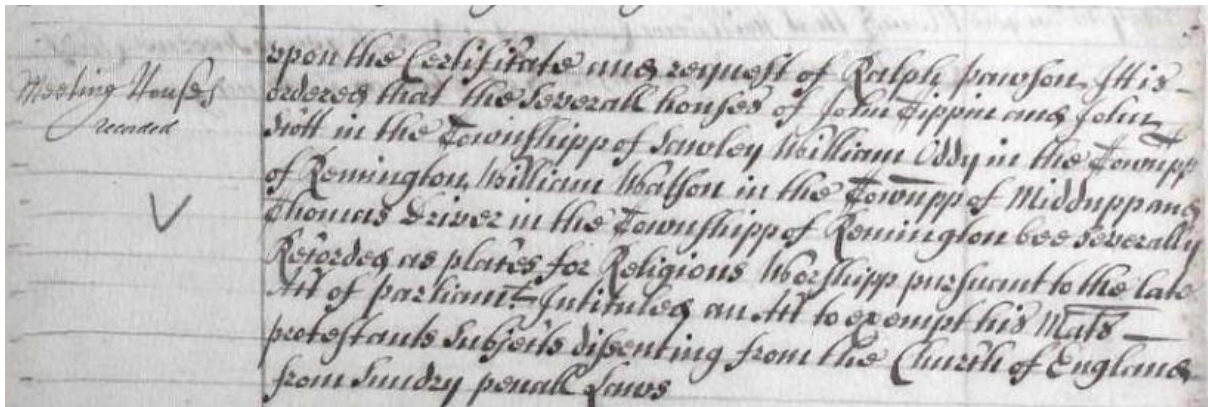 Meeting Houses
recorded
upon the Certificate and request of Ralph Pawson Itt is
ordered that the severall houses of John Tippin and John
Scott in the Townshipp of Sawley William Oddy in the Townpp
of Remington William Watson in the Townpp of Middupp and
Thomas Driver in the Townshipp of Remington bee severally
Recorded as places for Religious Worshipp pursuant to the late
Act of parliamt. Intituled an Act to exempt his Mats
protestants subjects dissenting from the Church of England
from sundry penall Laws